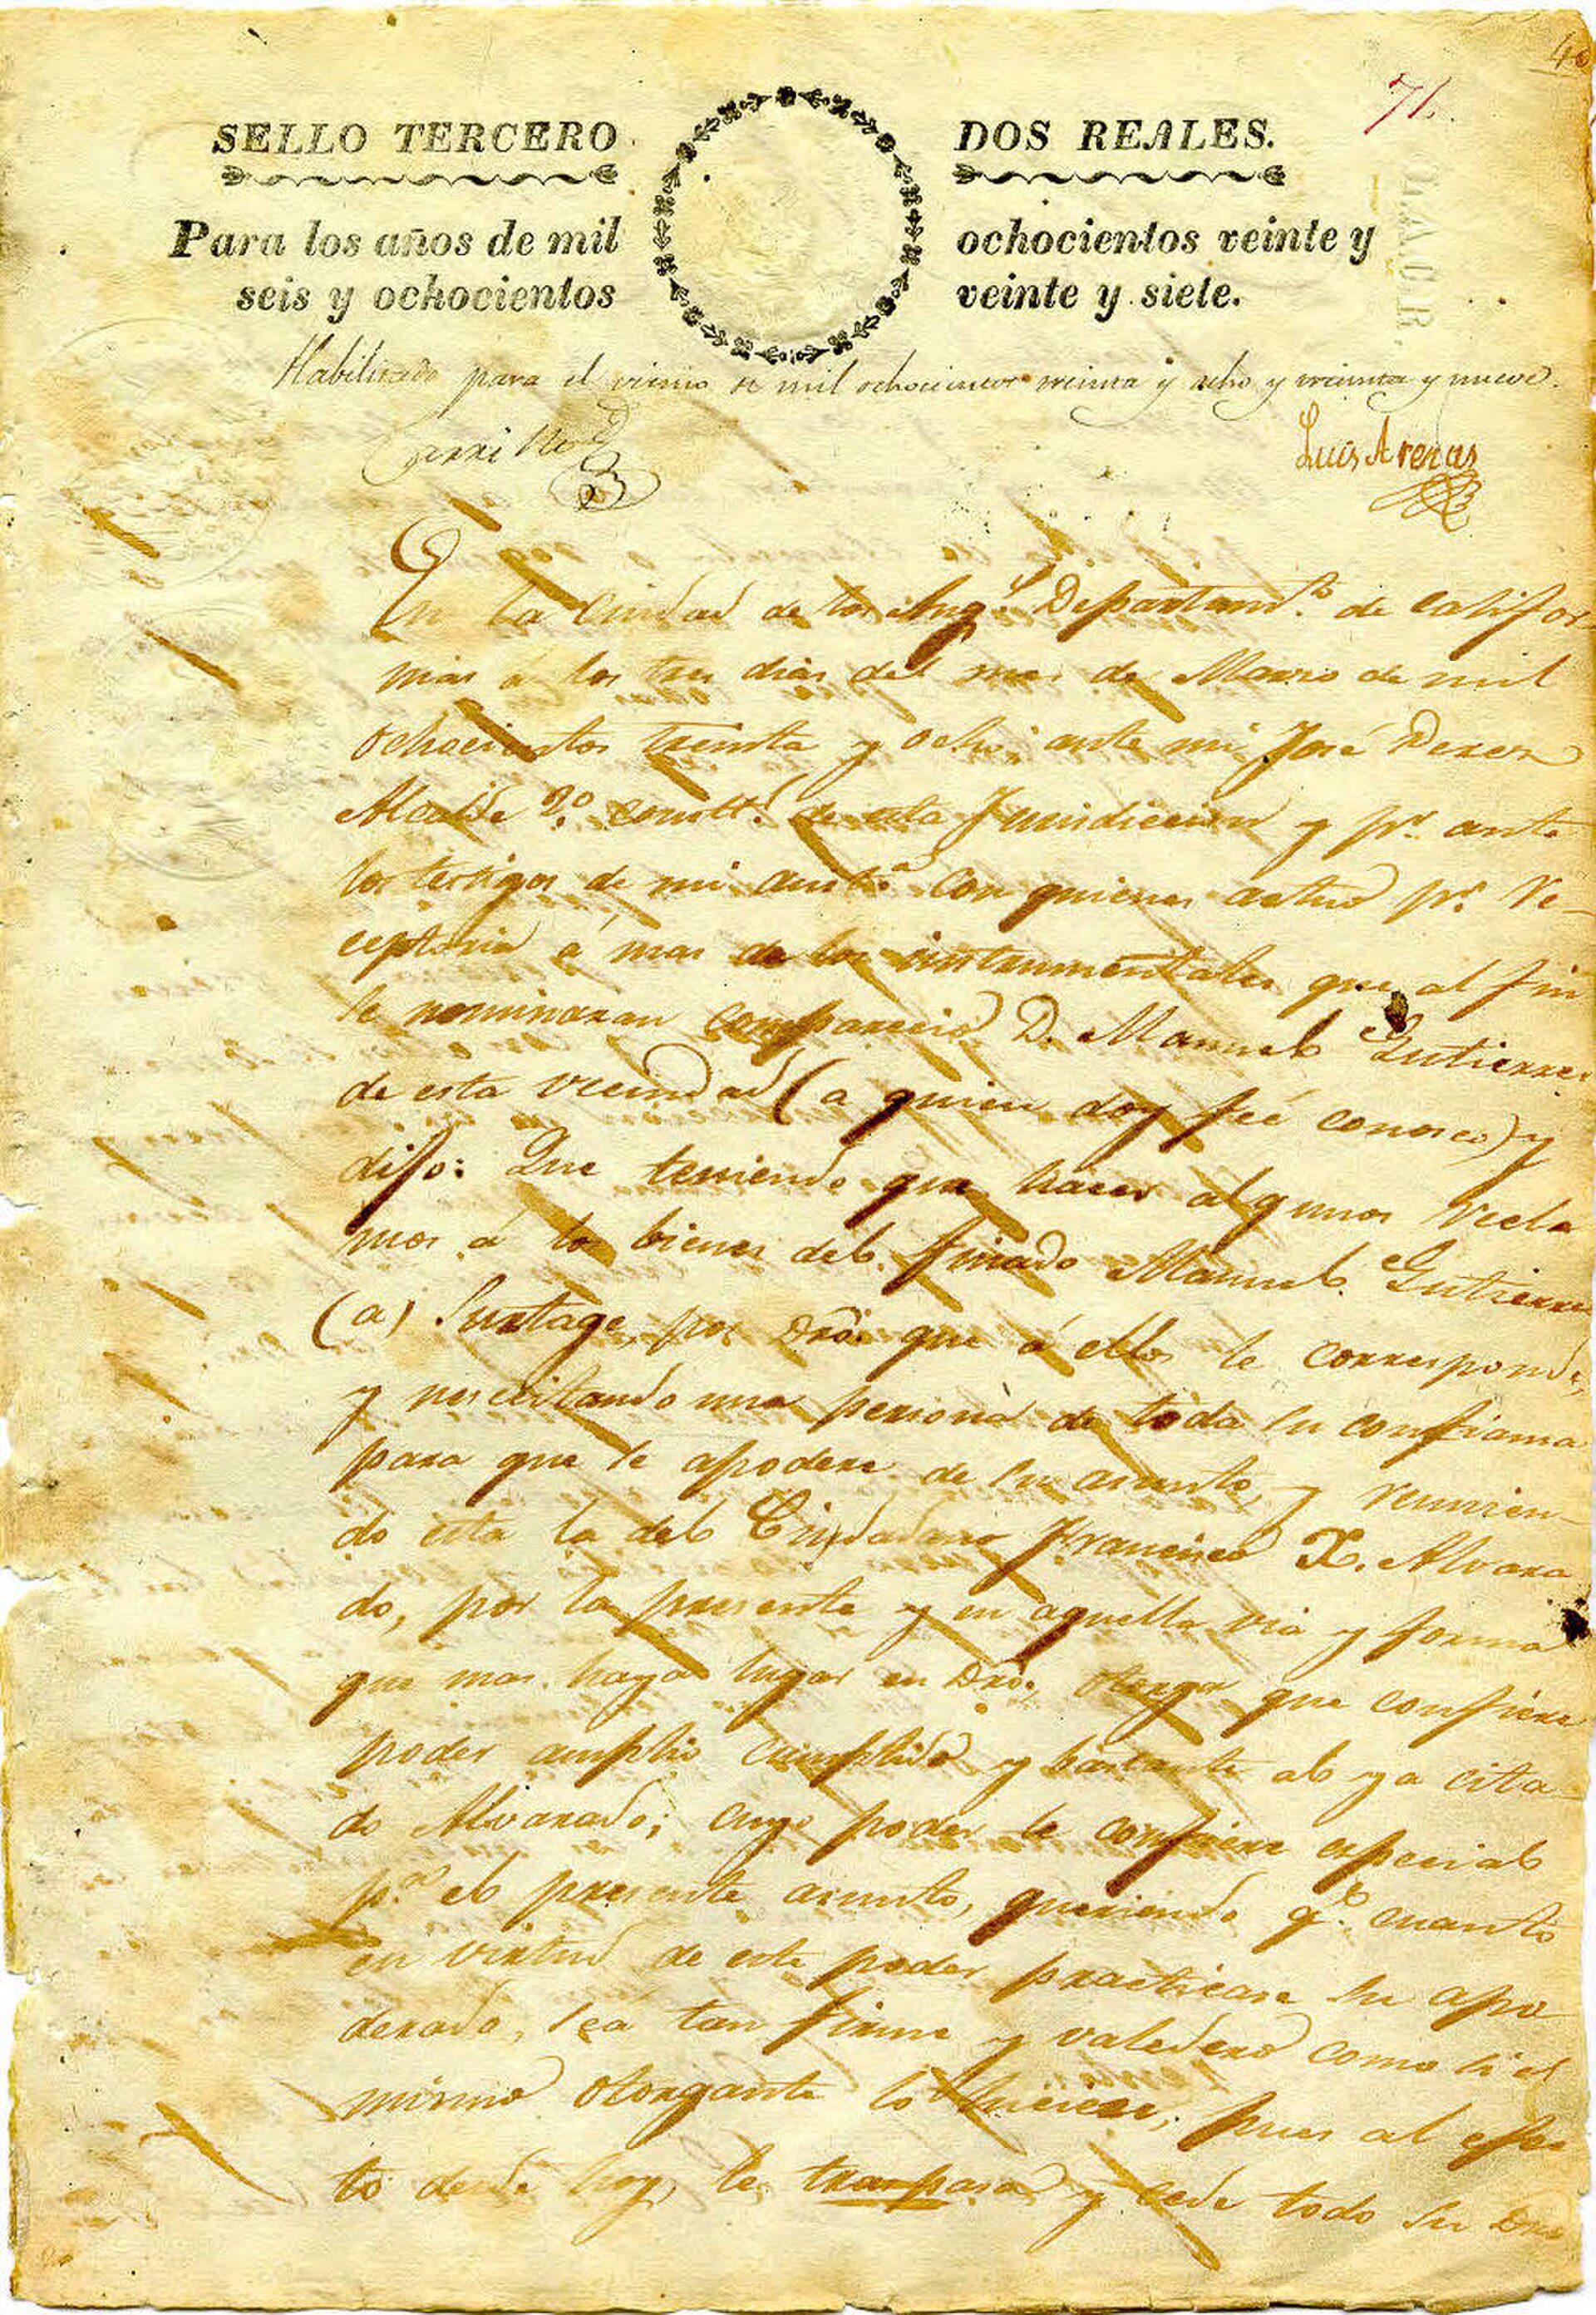 40
71.
SELLO TERCERO
DOS REALES.
Para los años de mil
ochocientos veinte y
seis y ochocientos
veinte y siete.
Habilitado para el vienio de mil ochocientos treinta y ocho y treinta y nueve.
Carrillo
Luis Arenas
En la Ciudad de los Ang.s Departam.to de Califor
nias á los tres dias del mes de Marzo de mil
ochocientos treinta y ocho: ante mi José Perez
Alcalde 2.o constl. de esta Jurisdiccion y pr. ante
los testigos de mi asist.a con quienes actuo pr. Re-
ceptoria á mas de los instrumentales que al fin
se nominaran comparecio D. Manuel Gutierrez
de esta vecindad (a quien doy feé conosco) y
dijo: Que teniendo que hacer algunos recla
mos á los bienes del finado Manuel Gutierrez
(a) Surtage, por Dro. que á ellos le corresponde,
y nescecitando una persona de toda su confiansa
para que se apodere de su asunto, y reunien-
do esta la del Ciudadano Francisco X. Alvara
do, por la presente y en aquella via y forma
que mas haya lugar en Dro., otorga que confiere
poder amplio cumplido y bastante al ya cita
do Alvarado; cuyo poder le confiere especial
p.a el presente asunto, queriendo q.e cuanto
en virtud de este poder practicare su apo
derado, seá tan firme y valedero como si el
mismo otorgante lo hiciere, pues al efec
to desde hoy, le traspasa y cede todo su Dro